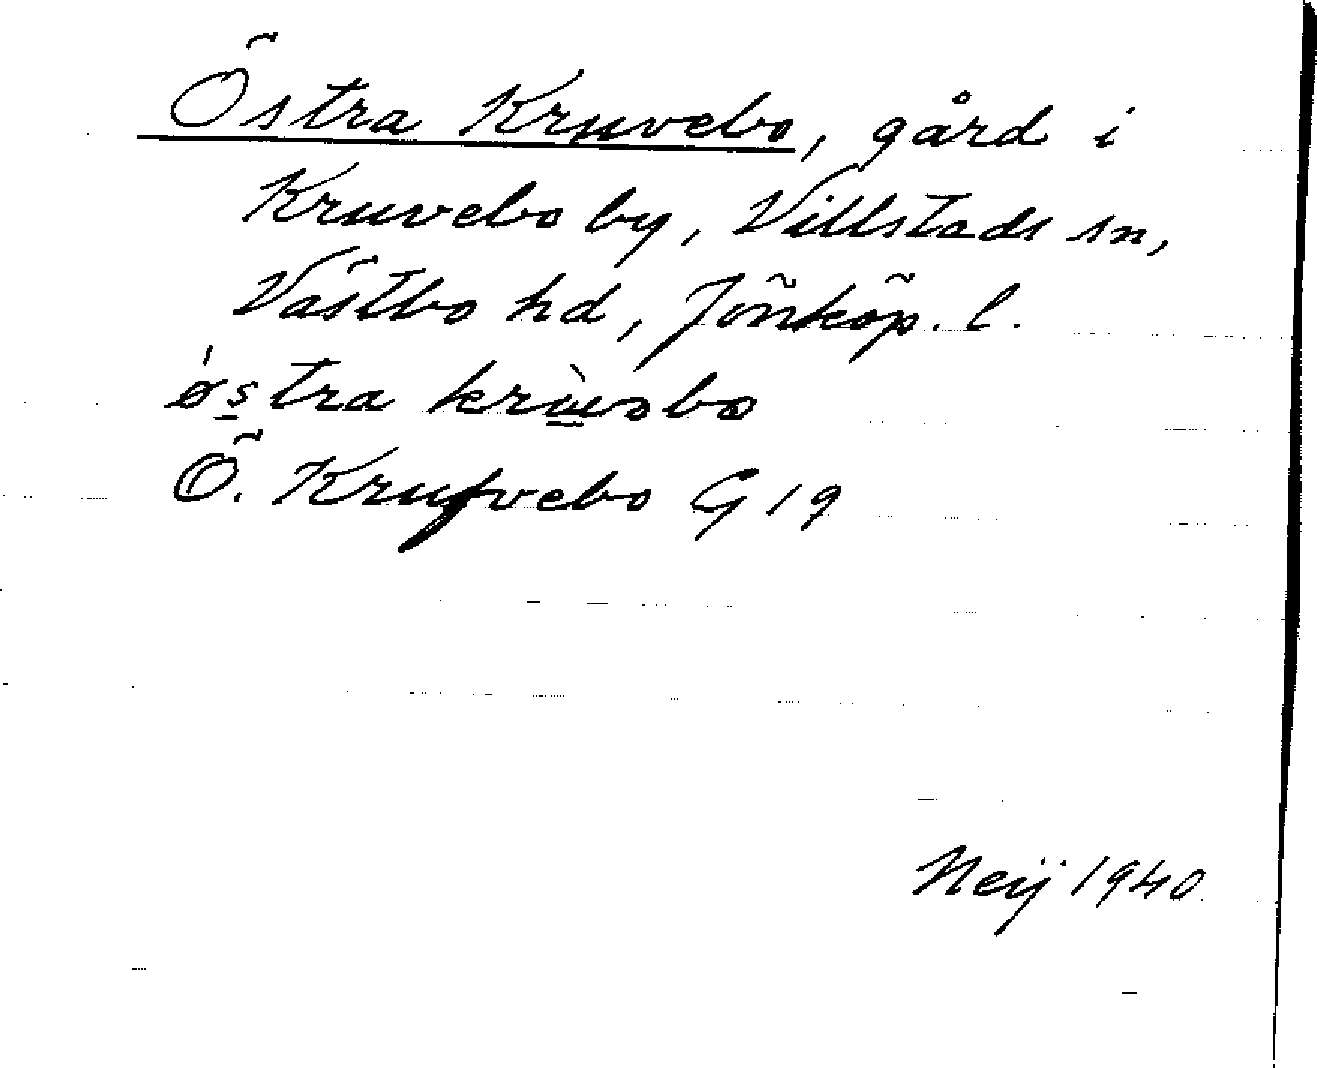 Östra Kruvebo, gård i
Kruvebo by, Villstads sn,
Västbo hd, Jönköp. l.
östra
Ö. Krufvebo G 19
Neij 1940